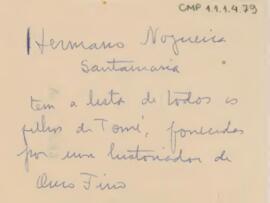 CMP 1.1.1.4.79
Hermano Nogueira
Santamaria
tem a lista de todos os
filhos de Tomé, fornecidas
por um historiador de
Ouro Fino